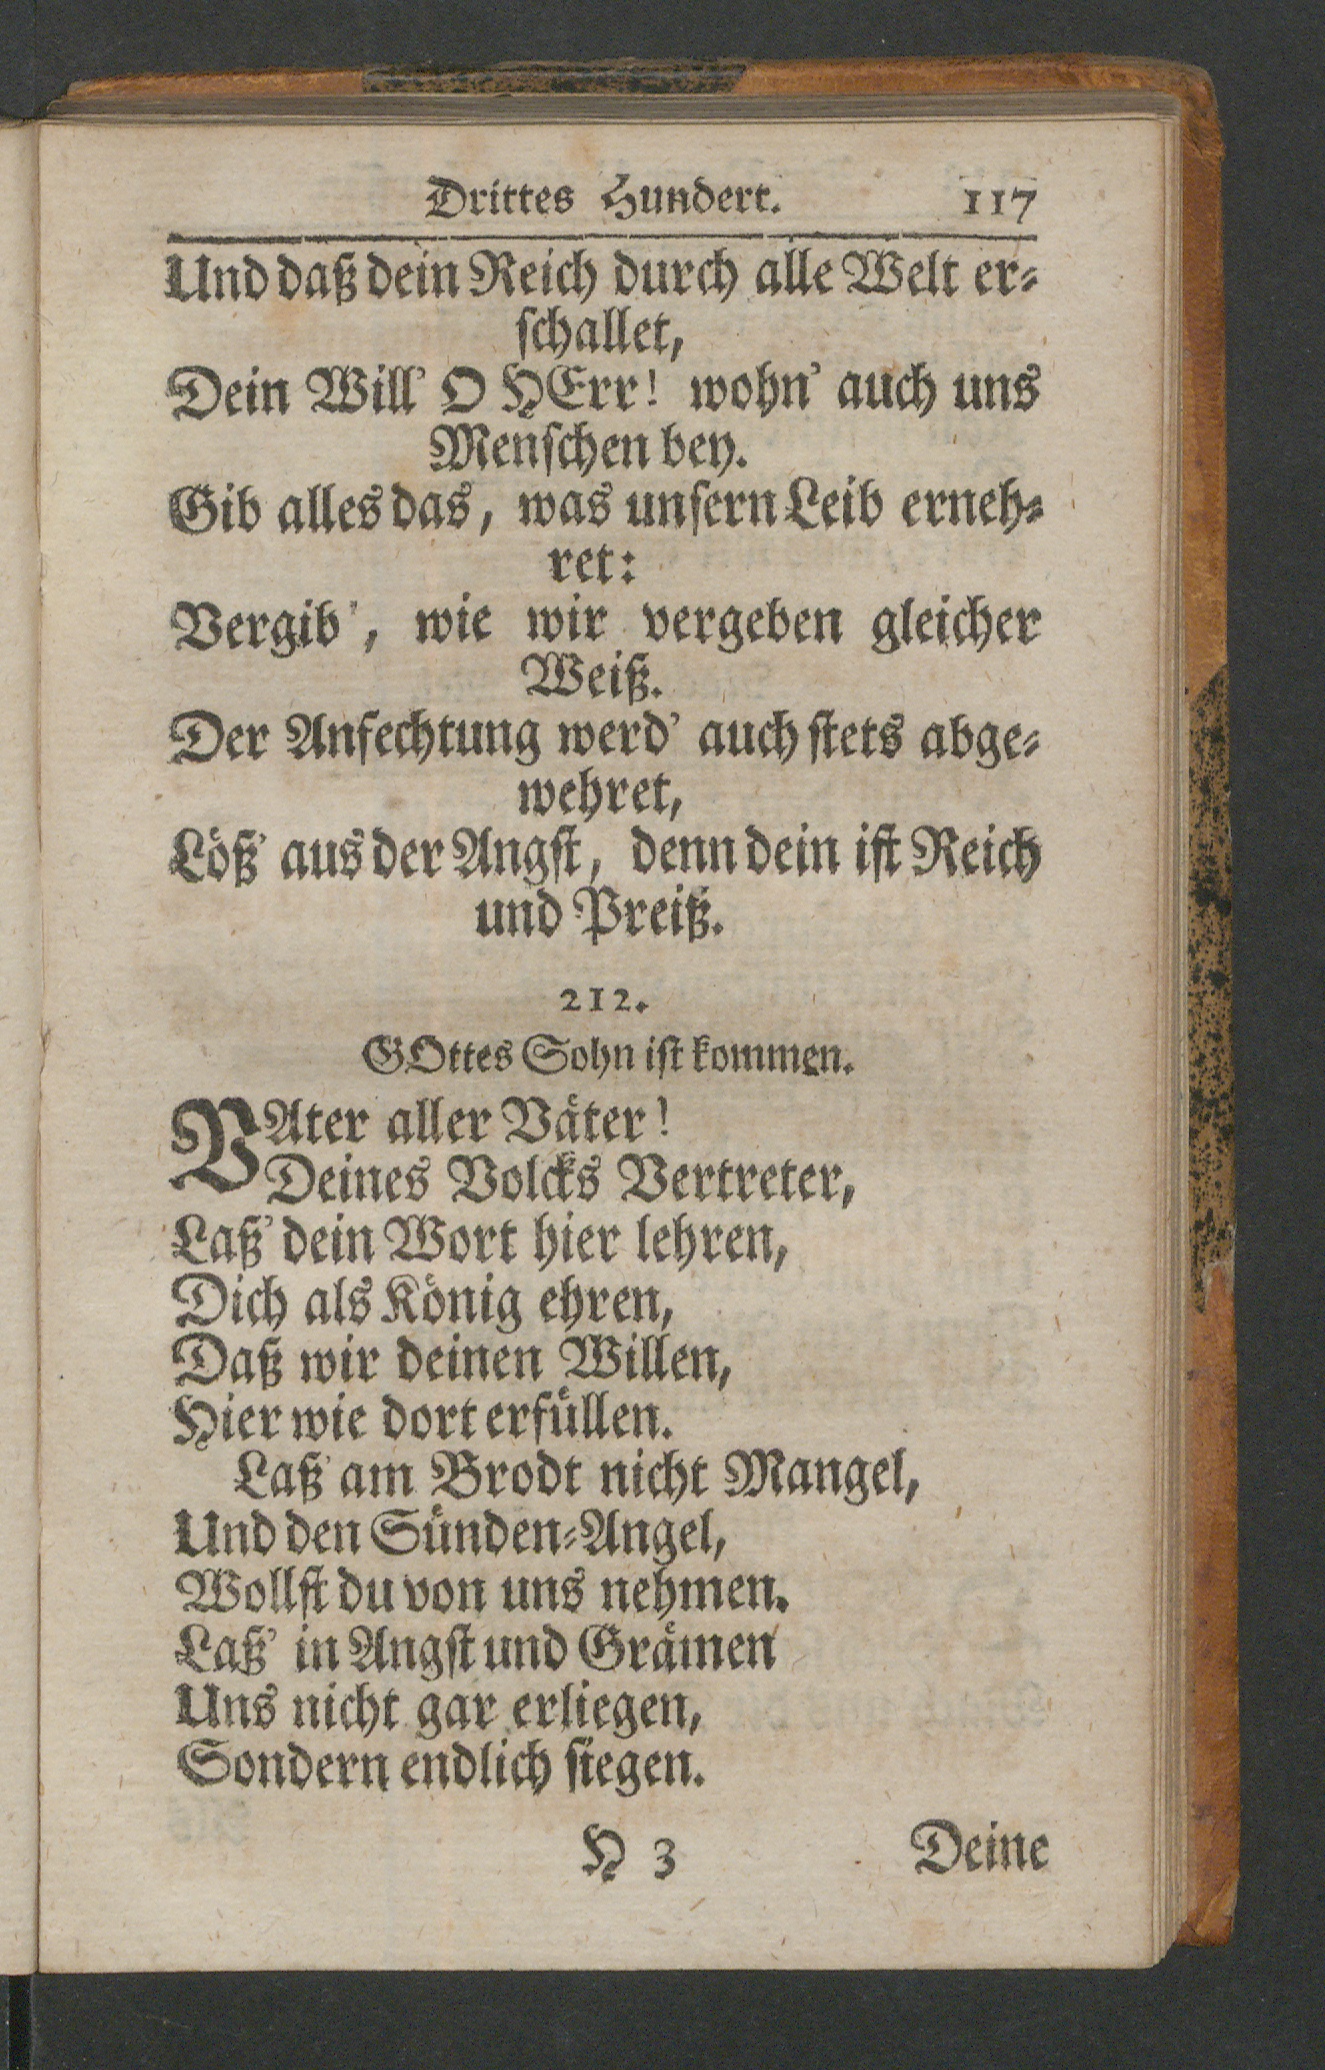 Drittes Hundert. 117
Und daß dein Reich durch alle Welt er⸗
ſchallet,
Dein Will' O HErr! wohn' auch uns
Menſchen bey.
Gib alles das, was unſern Leib erneh⸗
ret:
Vergib', wie wir vergeben gleicher
Weiß.
Der Anfechtung werd' auch ſtets abge⸗
wehret,
Löß' aus der Angſt, denn dein iſt Reich
und Preiß.
212.
GOttes Sohn iſt kommen.
VAter aller Väter!
Deines Volcks Vertreter,
Laß' dein Wort hier lehren,
Dich als König ehren,
Daß wir deinen Willen,
Hier wie dort erfüllen.
Laß' am Brodt nicht Mangel,
Und den Sünden⸗Angel,
Wollſt du von uns nehmen.
Laß' in Angſt und Grämen
Uns nicht gar erliegen,
Sondern endlich ſiegen.
H 3 Deine